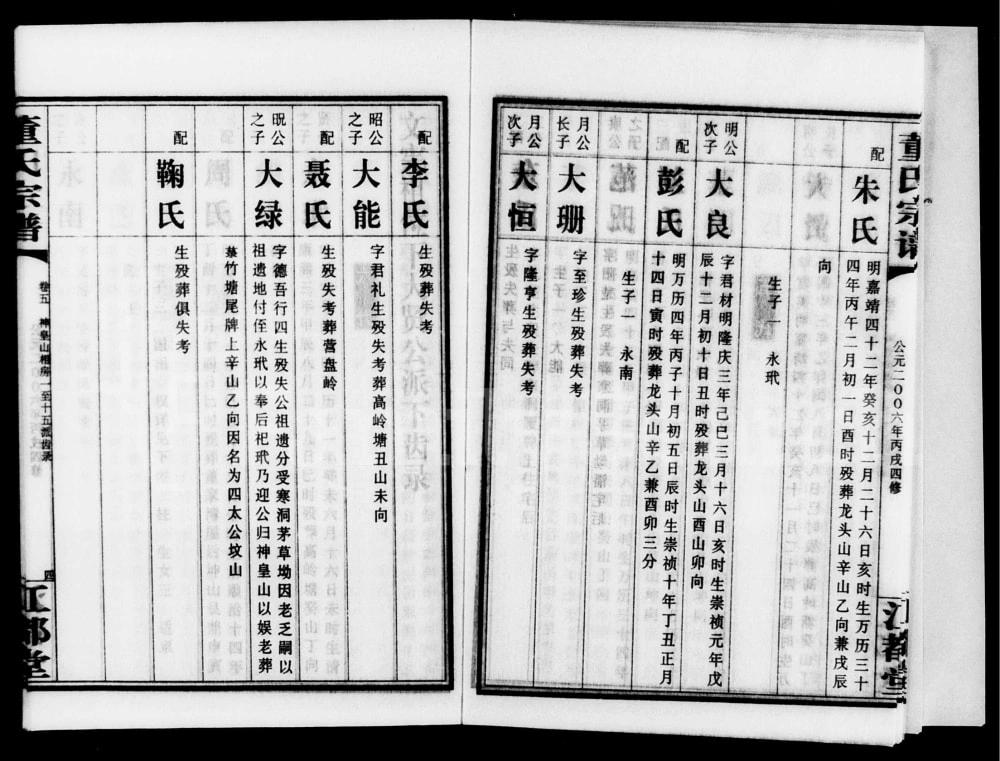 董氏宗谱
公元二〇〇六年丙戌四修
江都堂
配
朱氏
明嘉靖四十二年癸亥十二月二十六日亥时生万历三十
四年丙午二月初一日酉时殁葬龙头山辛山乙向兼戌辰
向
生子一 永玳
明公
次子
大良
字君材明隆庆三年己巳三月十六日亥时生崇祯元年戊
辰十二月初十日丑时殁葬龙头山酉山卯向
配
彭氏
明万历四年丙子十月初五日辰时生崇祯十年丁丑正月
十四日寅时殁葬龙头山辛乙兼酉卯三分
生子一 永南
月公
长子
大珊
字至珍生殁葬失考
月公
次子
大恒
字隆亨生殁葬失考
配
李氏
生殁葬失考
昭公
之子
大能
字君礼生殁失考葬高岭塘丑山未向
配
聂氏
生殁失考葬营盘岭
公
之子
大绿
字德吾行四生殁失公祖遗分受寒洞茅草坳因老乏嗣以
祖遗地付侄永玳以奉后祀玳乃迎公归神皇山以娱老葬
竹塘尾牌上辛山乙向因名为四太公坟山
配
鞠氏
生殁葬俱失考
董氏宗谱
卷五 神皇山 房一至十五派齿录
四
江都堂